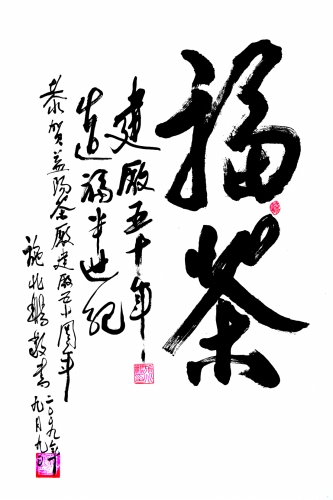 福茶
建厰五十年
造福半世纪
恭贺益阳茶厰建厰五十周年
施兆鹏敬书
二〇〇九年
九月九日